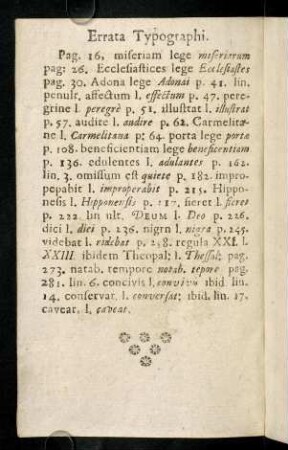 Errata Typographi.
Pag. 16, miseriam lege miseriarum
pag: 26. Ecclesiastices lege Ecclesiastes
pag. 30. Adona lege Adonai p. 41. lin.
penult, affectum l. effectum p. 47. pere-
grine l. peregrè p. 51, illustat l. illustrat
p. 57. audite l. audire p. 62. Carmelitæ-
ne l. Carmelitana p: 64. porta lege portæ
p. 108. beneficientiam lege beneficentiam
p. 136. edulentes l. adulantes p. 162.
lin. 3. omissum est quiete p. 182. impro-
pepabit l. improperabit p. 215. Hippo-
nesis l. Hipponensis p. 217, sieret l. fieret
p. 222. lin ult. DEUM l. Deo p. 226.
dici l. diei p. 236. nigrn l. nigra p. 245.
videbat l. ridebat p. 258. regula XXI. l.
XXIII ibidem Theopal: l. Thessal: pag.
273. natab. tempore notab. tepore pag.
281. lin. 6. concivis l. convivu ibid lin.
14. conservat. l. conversat; ibid. lin. 17.
caveat. l. caveat.